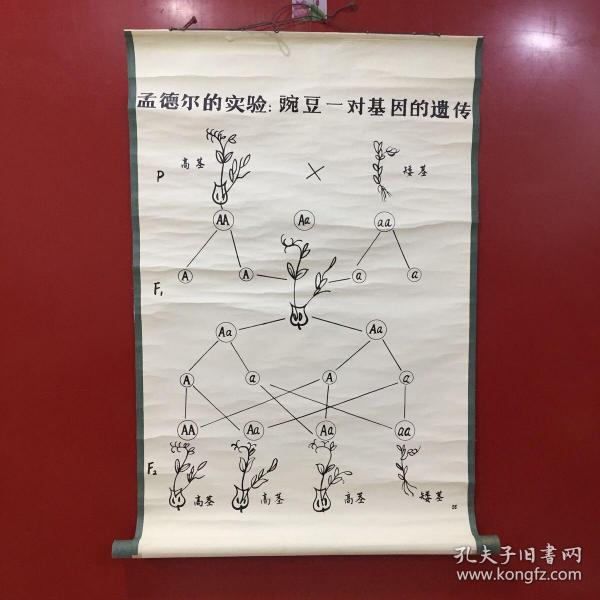 孟德尔的实验：豌豆一对基因的遗传
P 高茎 × 矮茎
AA Aa aa
A A a a
F₁
Aa Aa
A a A a
AA Aa Aa aa
F₂ 高茎 高茎 高茎 矮茎
孔夫子旧书网
www.kongfz.com